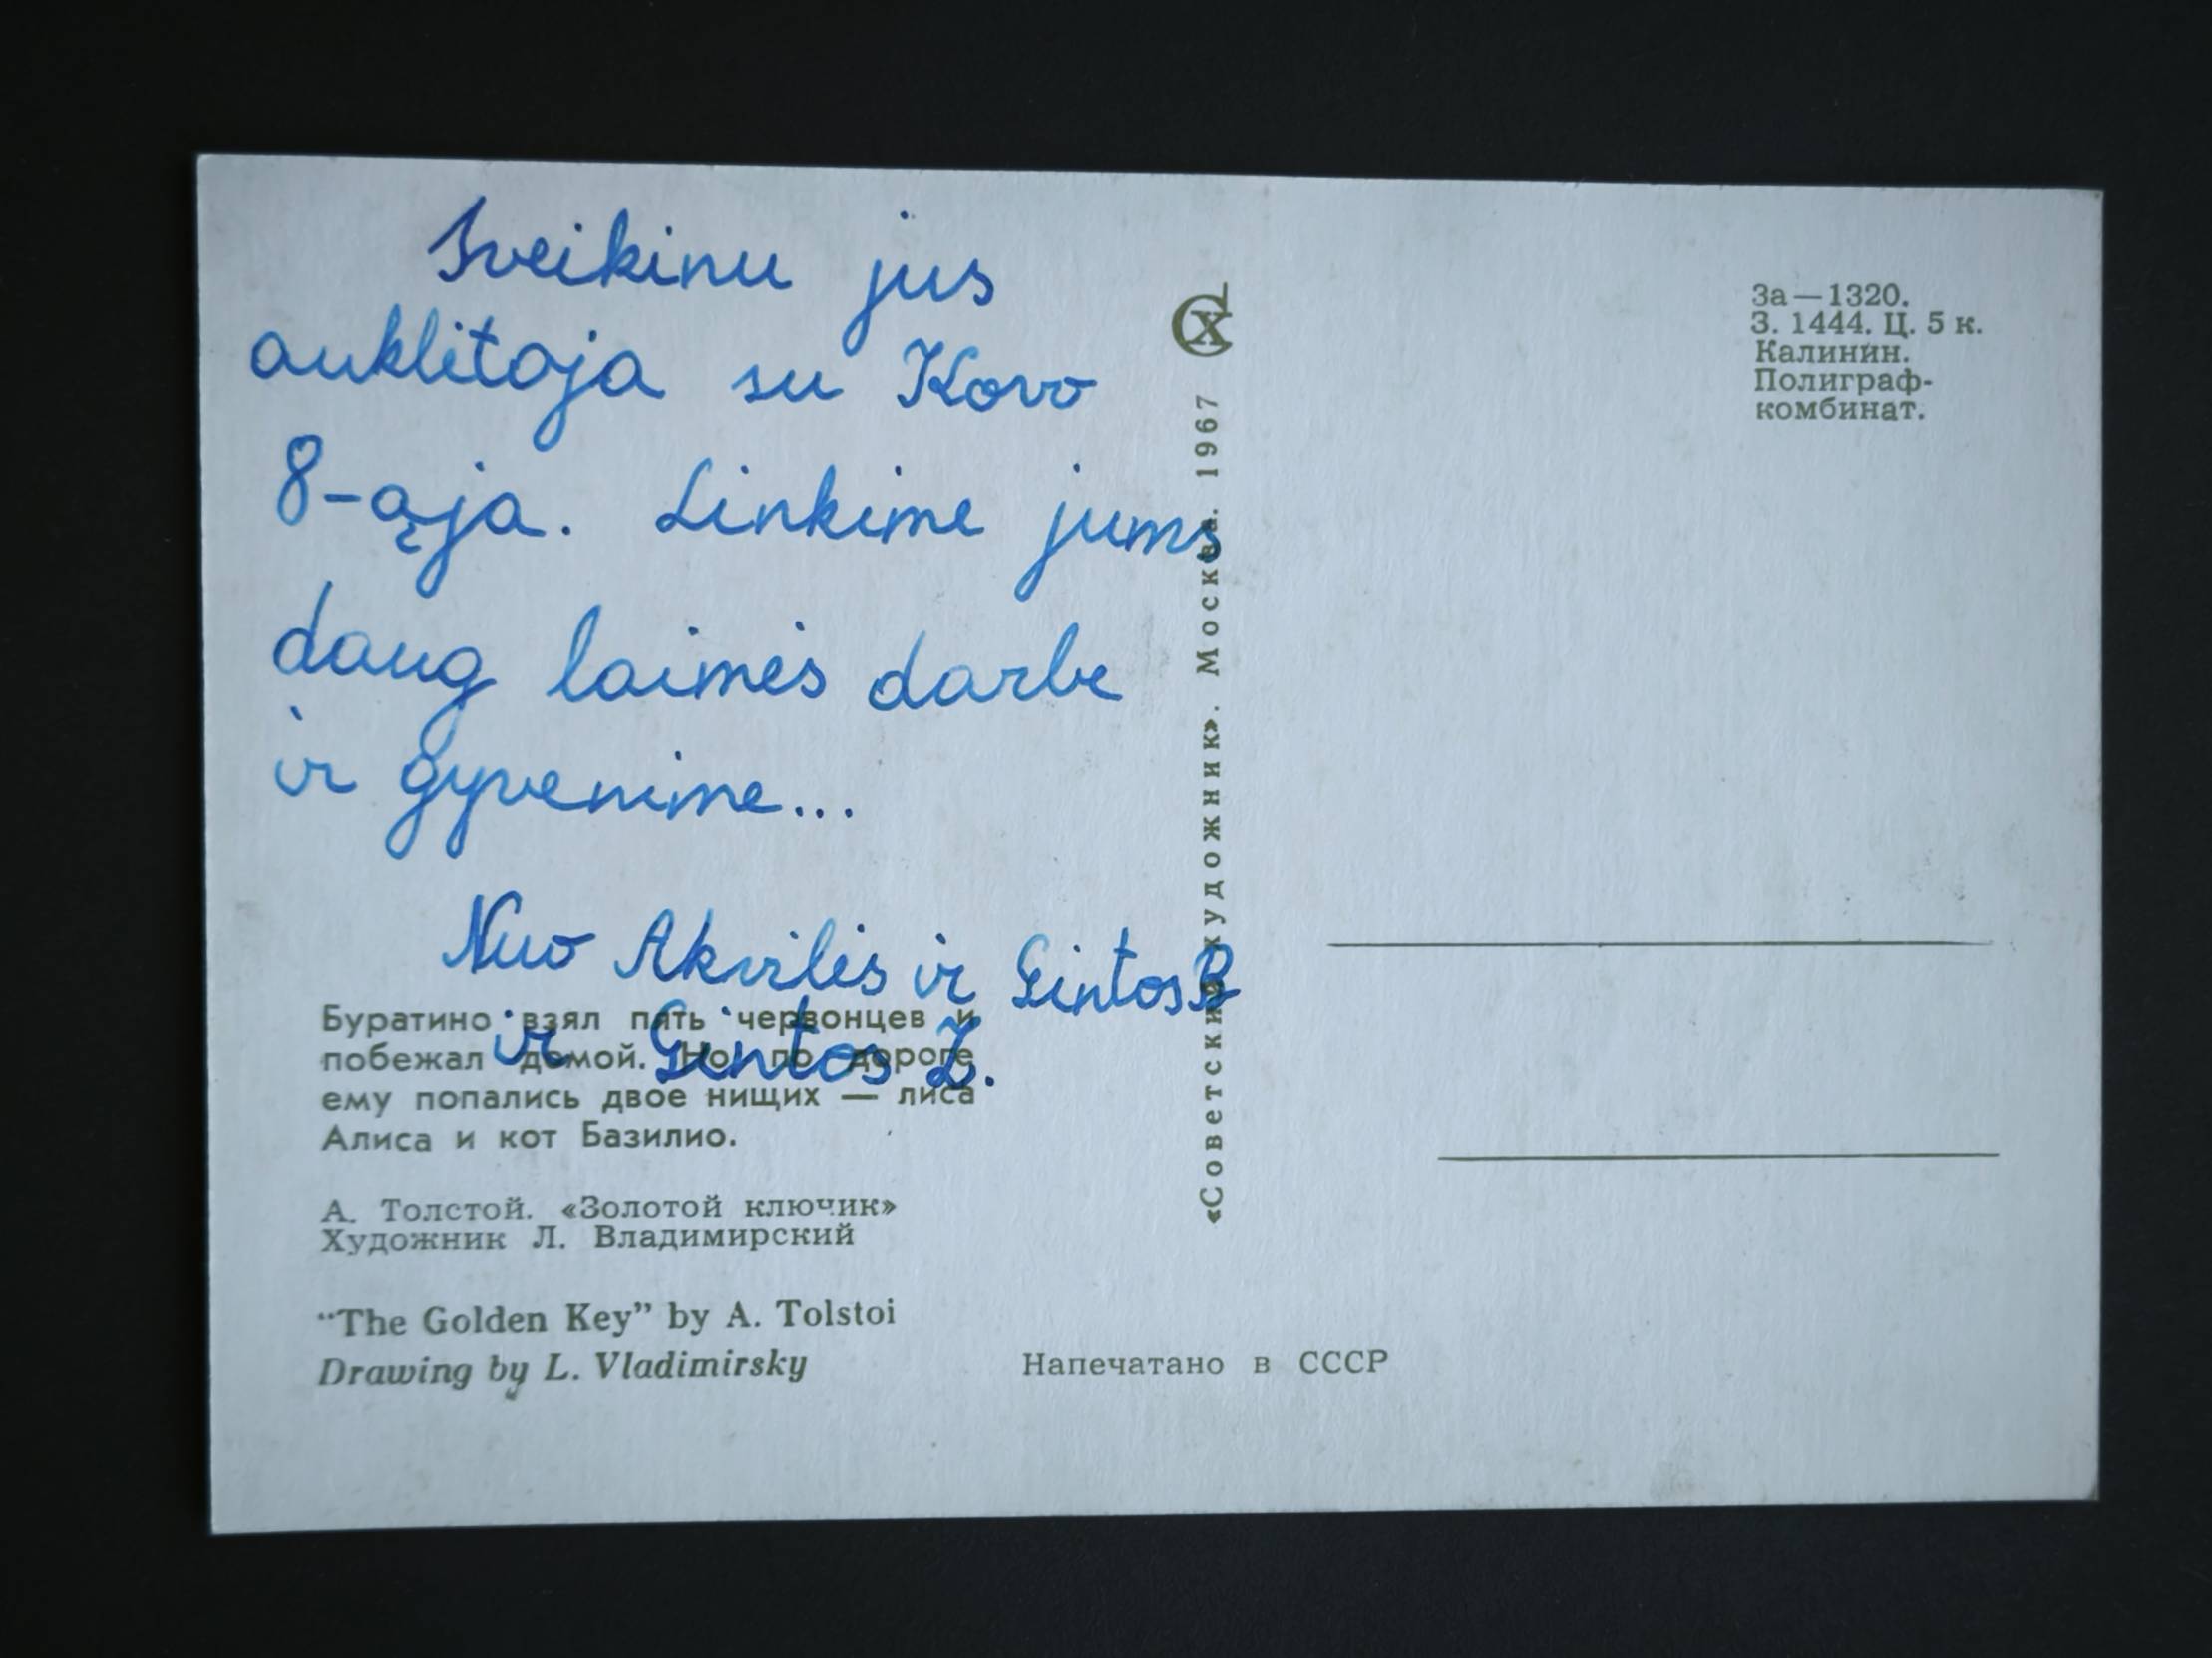 Sveikinu jus
auklitoja su Kovo
8-ąja. Linkime jums
daug laimės darbe
ir gyvenime...
Nuo Akvilės ir Gintos B
ir Gintos Z.
Буратино взял пять червонцев и
побежал домой. Но по дороге
ему попались двое нищих — лиса
Алиса и кот Базилио.
А. Толстой. «Золотой ключик»
Художник Л. Владимирский
“The Golden Key” by A. Tolstoi
Drawing by L. Vladimirsky
Напечатано в СССР
СХ
«Советский художник». Москва. 1967
За—1320.
З. 1444. Ц. 5 к.
Калинин.
Полиграф-
комбинат.